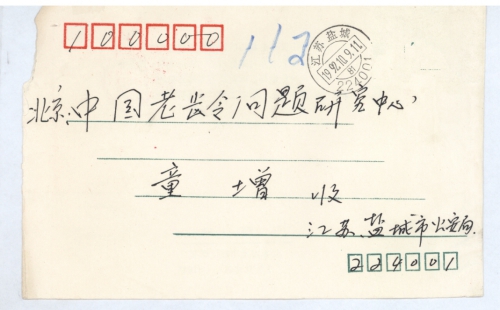 100000
112
江苏盐城
1992.10.9.11
81
224001
北京、中国老令问题研究中心
童增 收
江苏盐城市公安局
224001